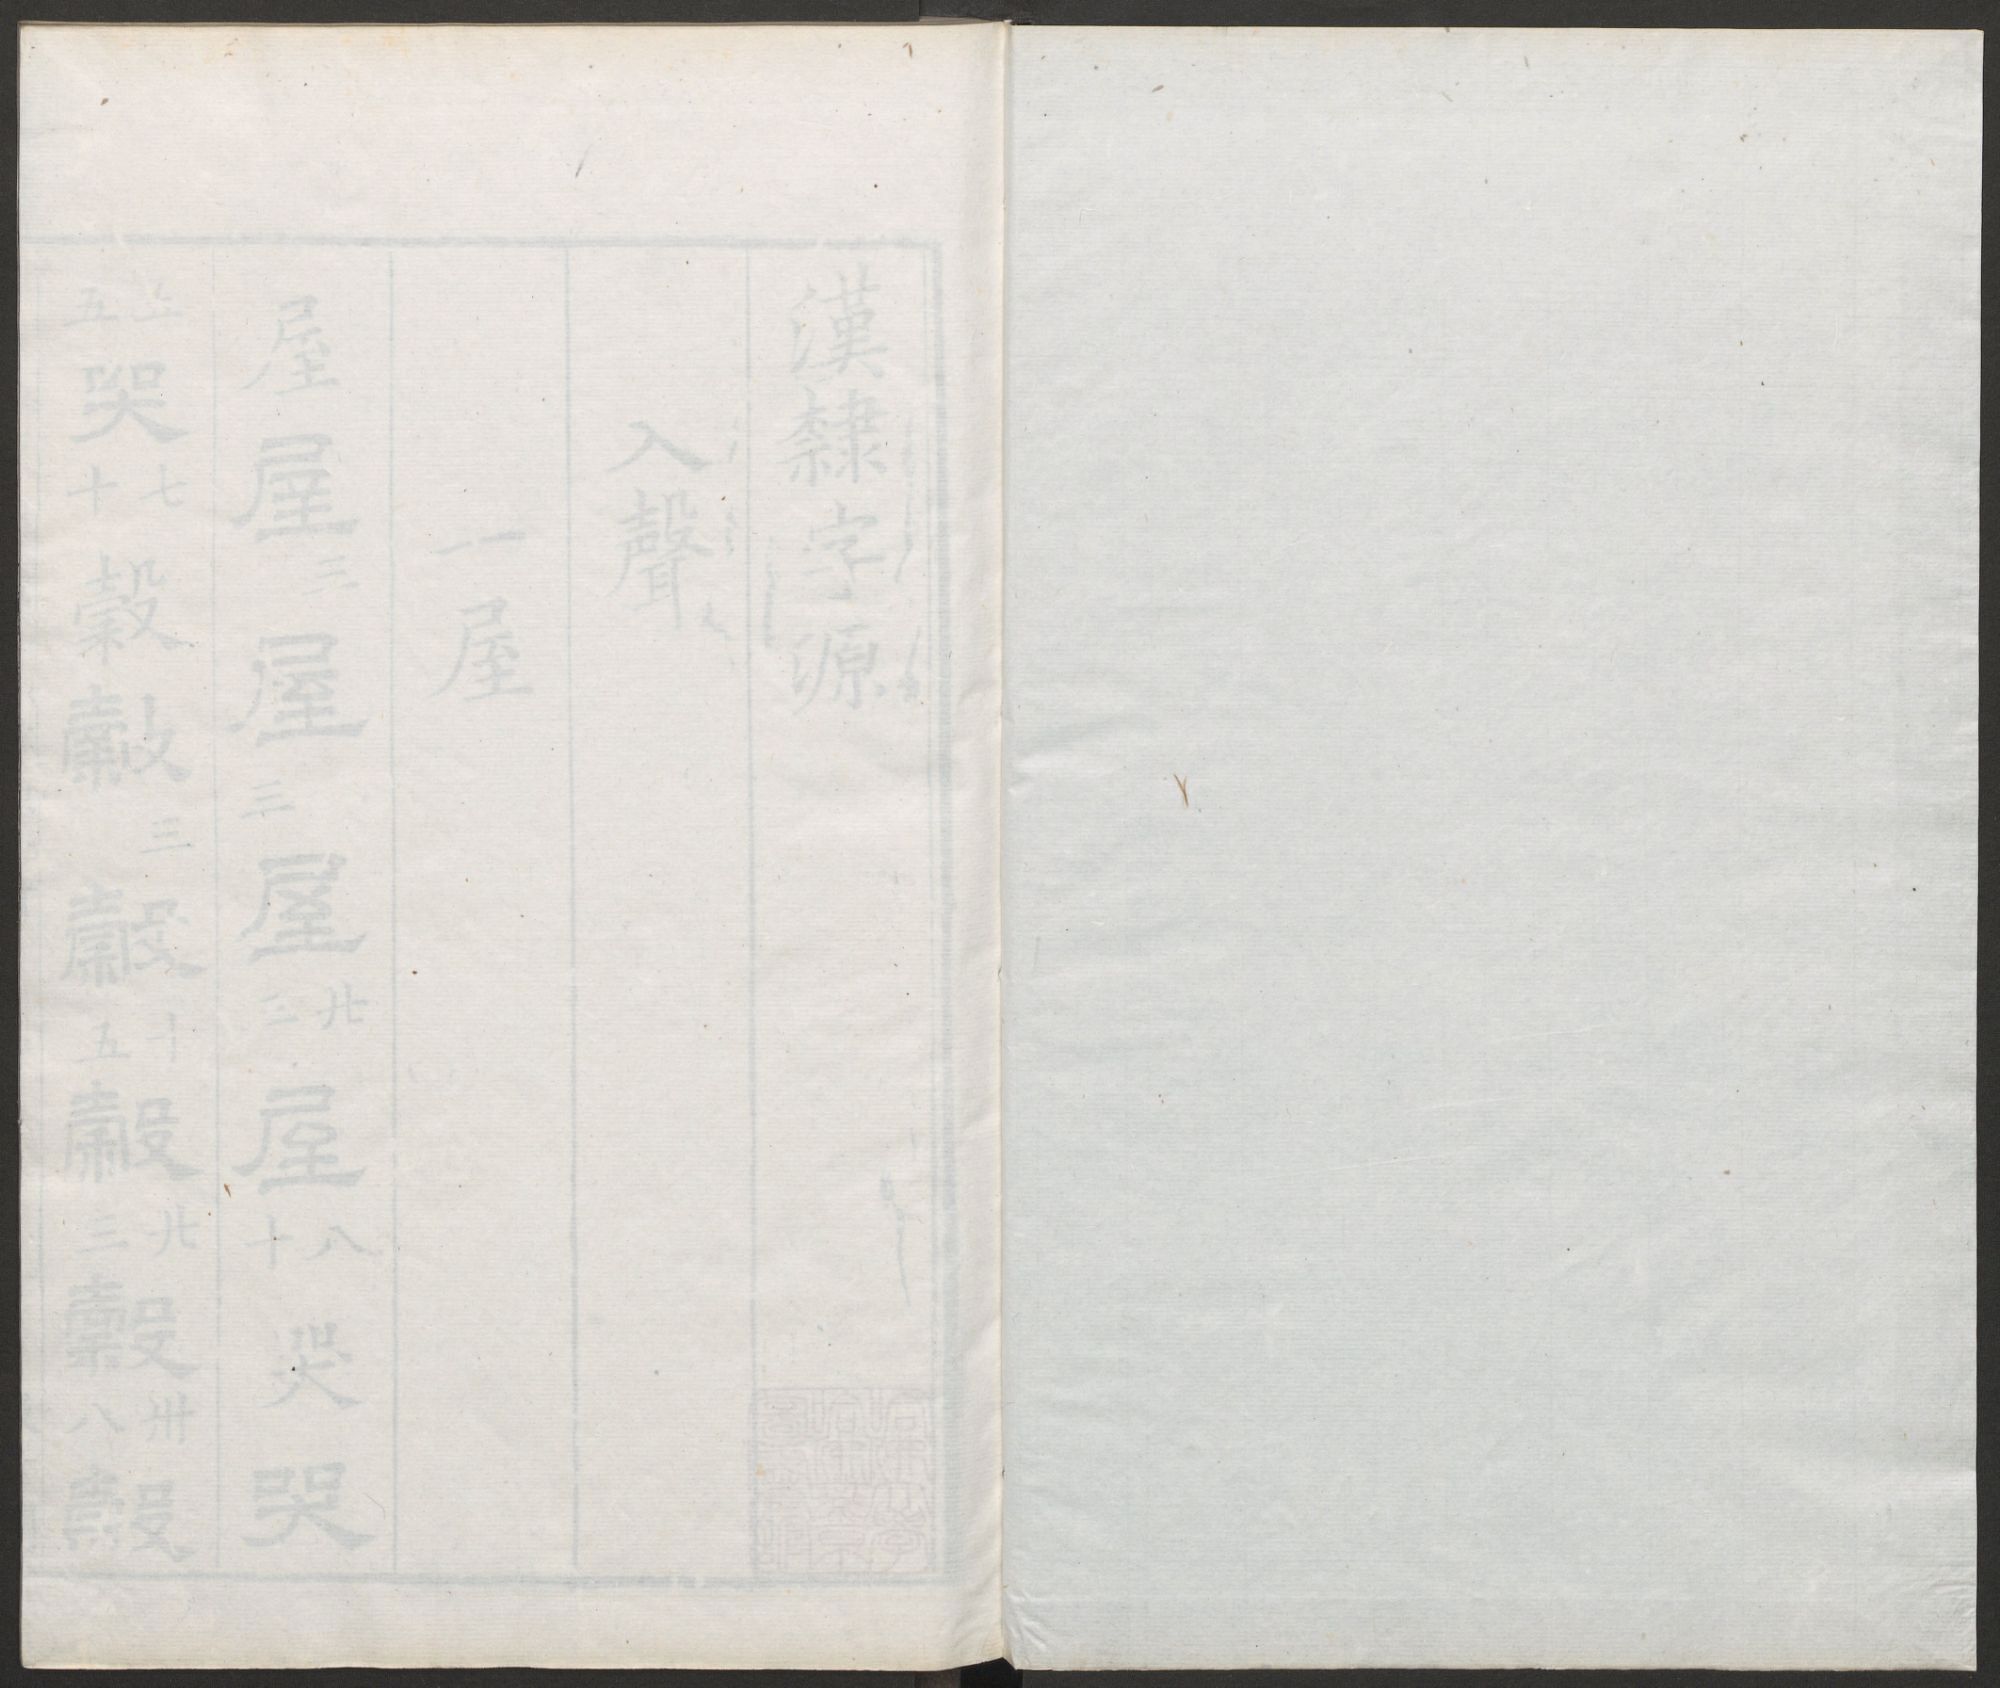 漢隸字源
入聲
一屋
屋屋三屋三屋廿三屋十八哭哭
五哭七十穀穀三穀十五穀廿三穀卅八穀